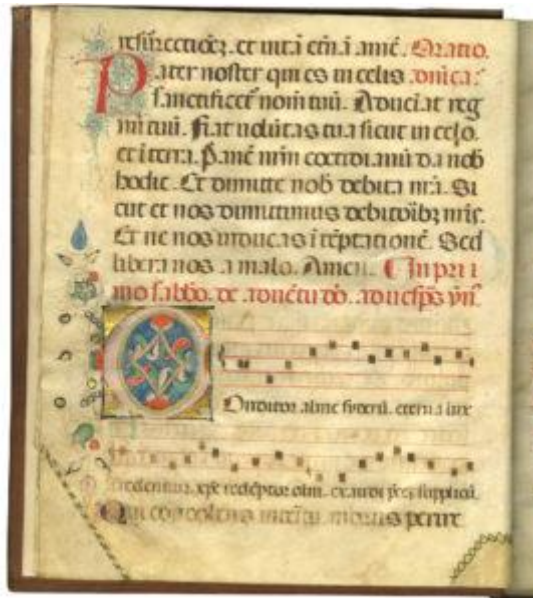 resurrectioēz. et uitā etnā amē. Oratio.
Pater noster qui es in celis. dnica:
Sanctificet nom tuū. Aduēiat reg
nū tuū. Fiat uolūtas tua sicut in celo.
et i terra. Panē nrm cotidianū da nob
hodie. Et dimitte nob debita nrā. Si
cut et nos dimittimus debitoībꝫ nris.
Et ne nos inducas i tēptationē. Sed
libera nos a malo. Amen. In pri
mo sabbo. de aduētu dō. ad uesps yn̄s.
Conditor alme siderū. eterna lux
credentiū. xpe redēptor oīm. exaudi pces supplicū.
Qui condolens interitu mortis perire